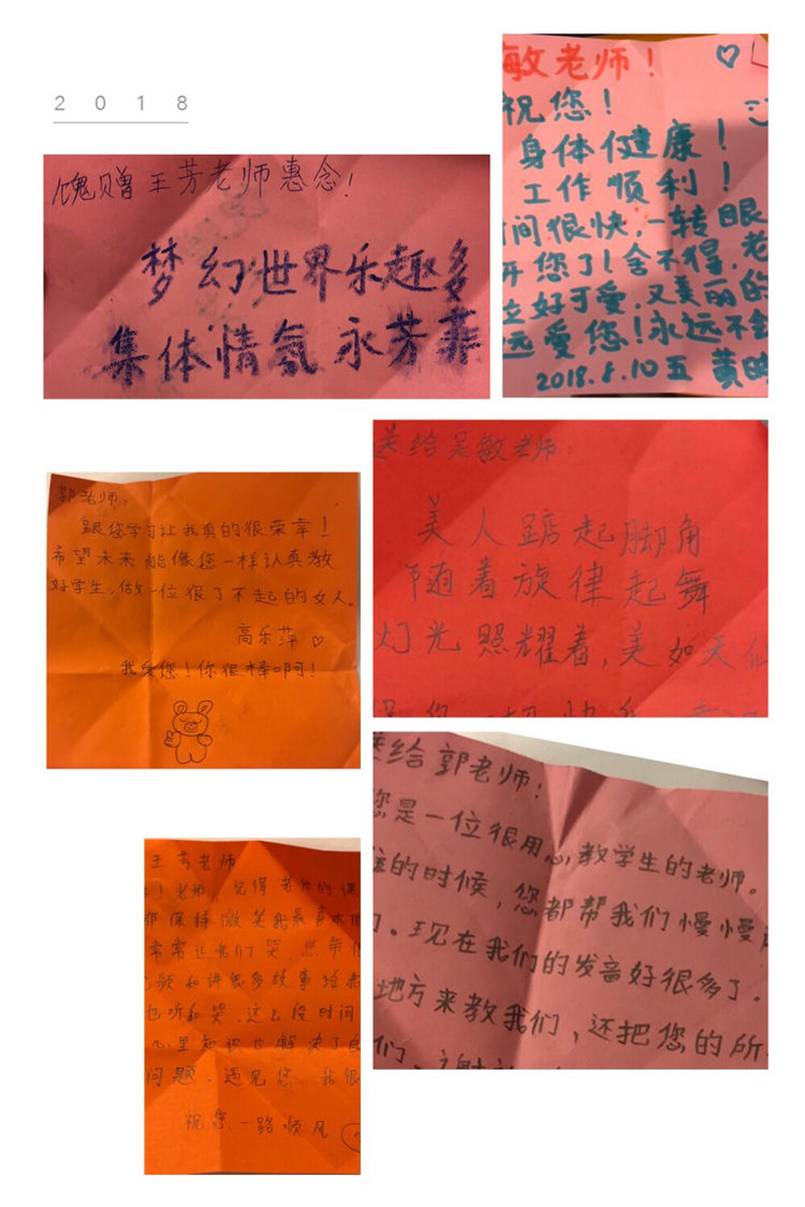 2018
愧赠王芳老师惠念!
梦幻世界乐趣多
集体情氛永芳菲
敏老师!
祝您!
身体健康!
工作顺利!
间很快,一转眼
您了!舍不得,老
位好可爱,又美丽的
远爱您!永远不会
2018.8.10五 黄
郭老师:
跟您学习让我真的很荣幸!
希望未来能像您一样认真教
好学生,做一位很了不起的女人。
高乐萍♡
我爱您!你很棒啊!
送给吴敏老师:
美人踮起脚角
随着旋律起舞
灯光照耀着,美如天仙
送给郭老师:
您是一位很用心教学生的老师。
的时候,您都帮我们慢慢
们。现在我们的发音好很多了。
地方来教我们,还把您的所
们,谢谢
王芳老师
老师,记得老师的课
都保持微笑我最喜欢
常常让我们哭,您带
视频和讲很多故事给我
也听和哭,这么段时间
心里知识也解决了
问题。遇见您,我很
祝您一路顺风